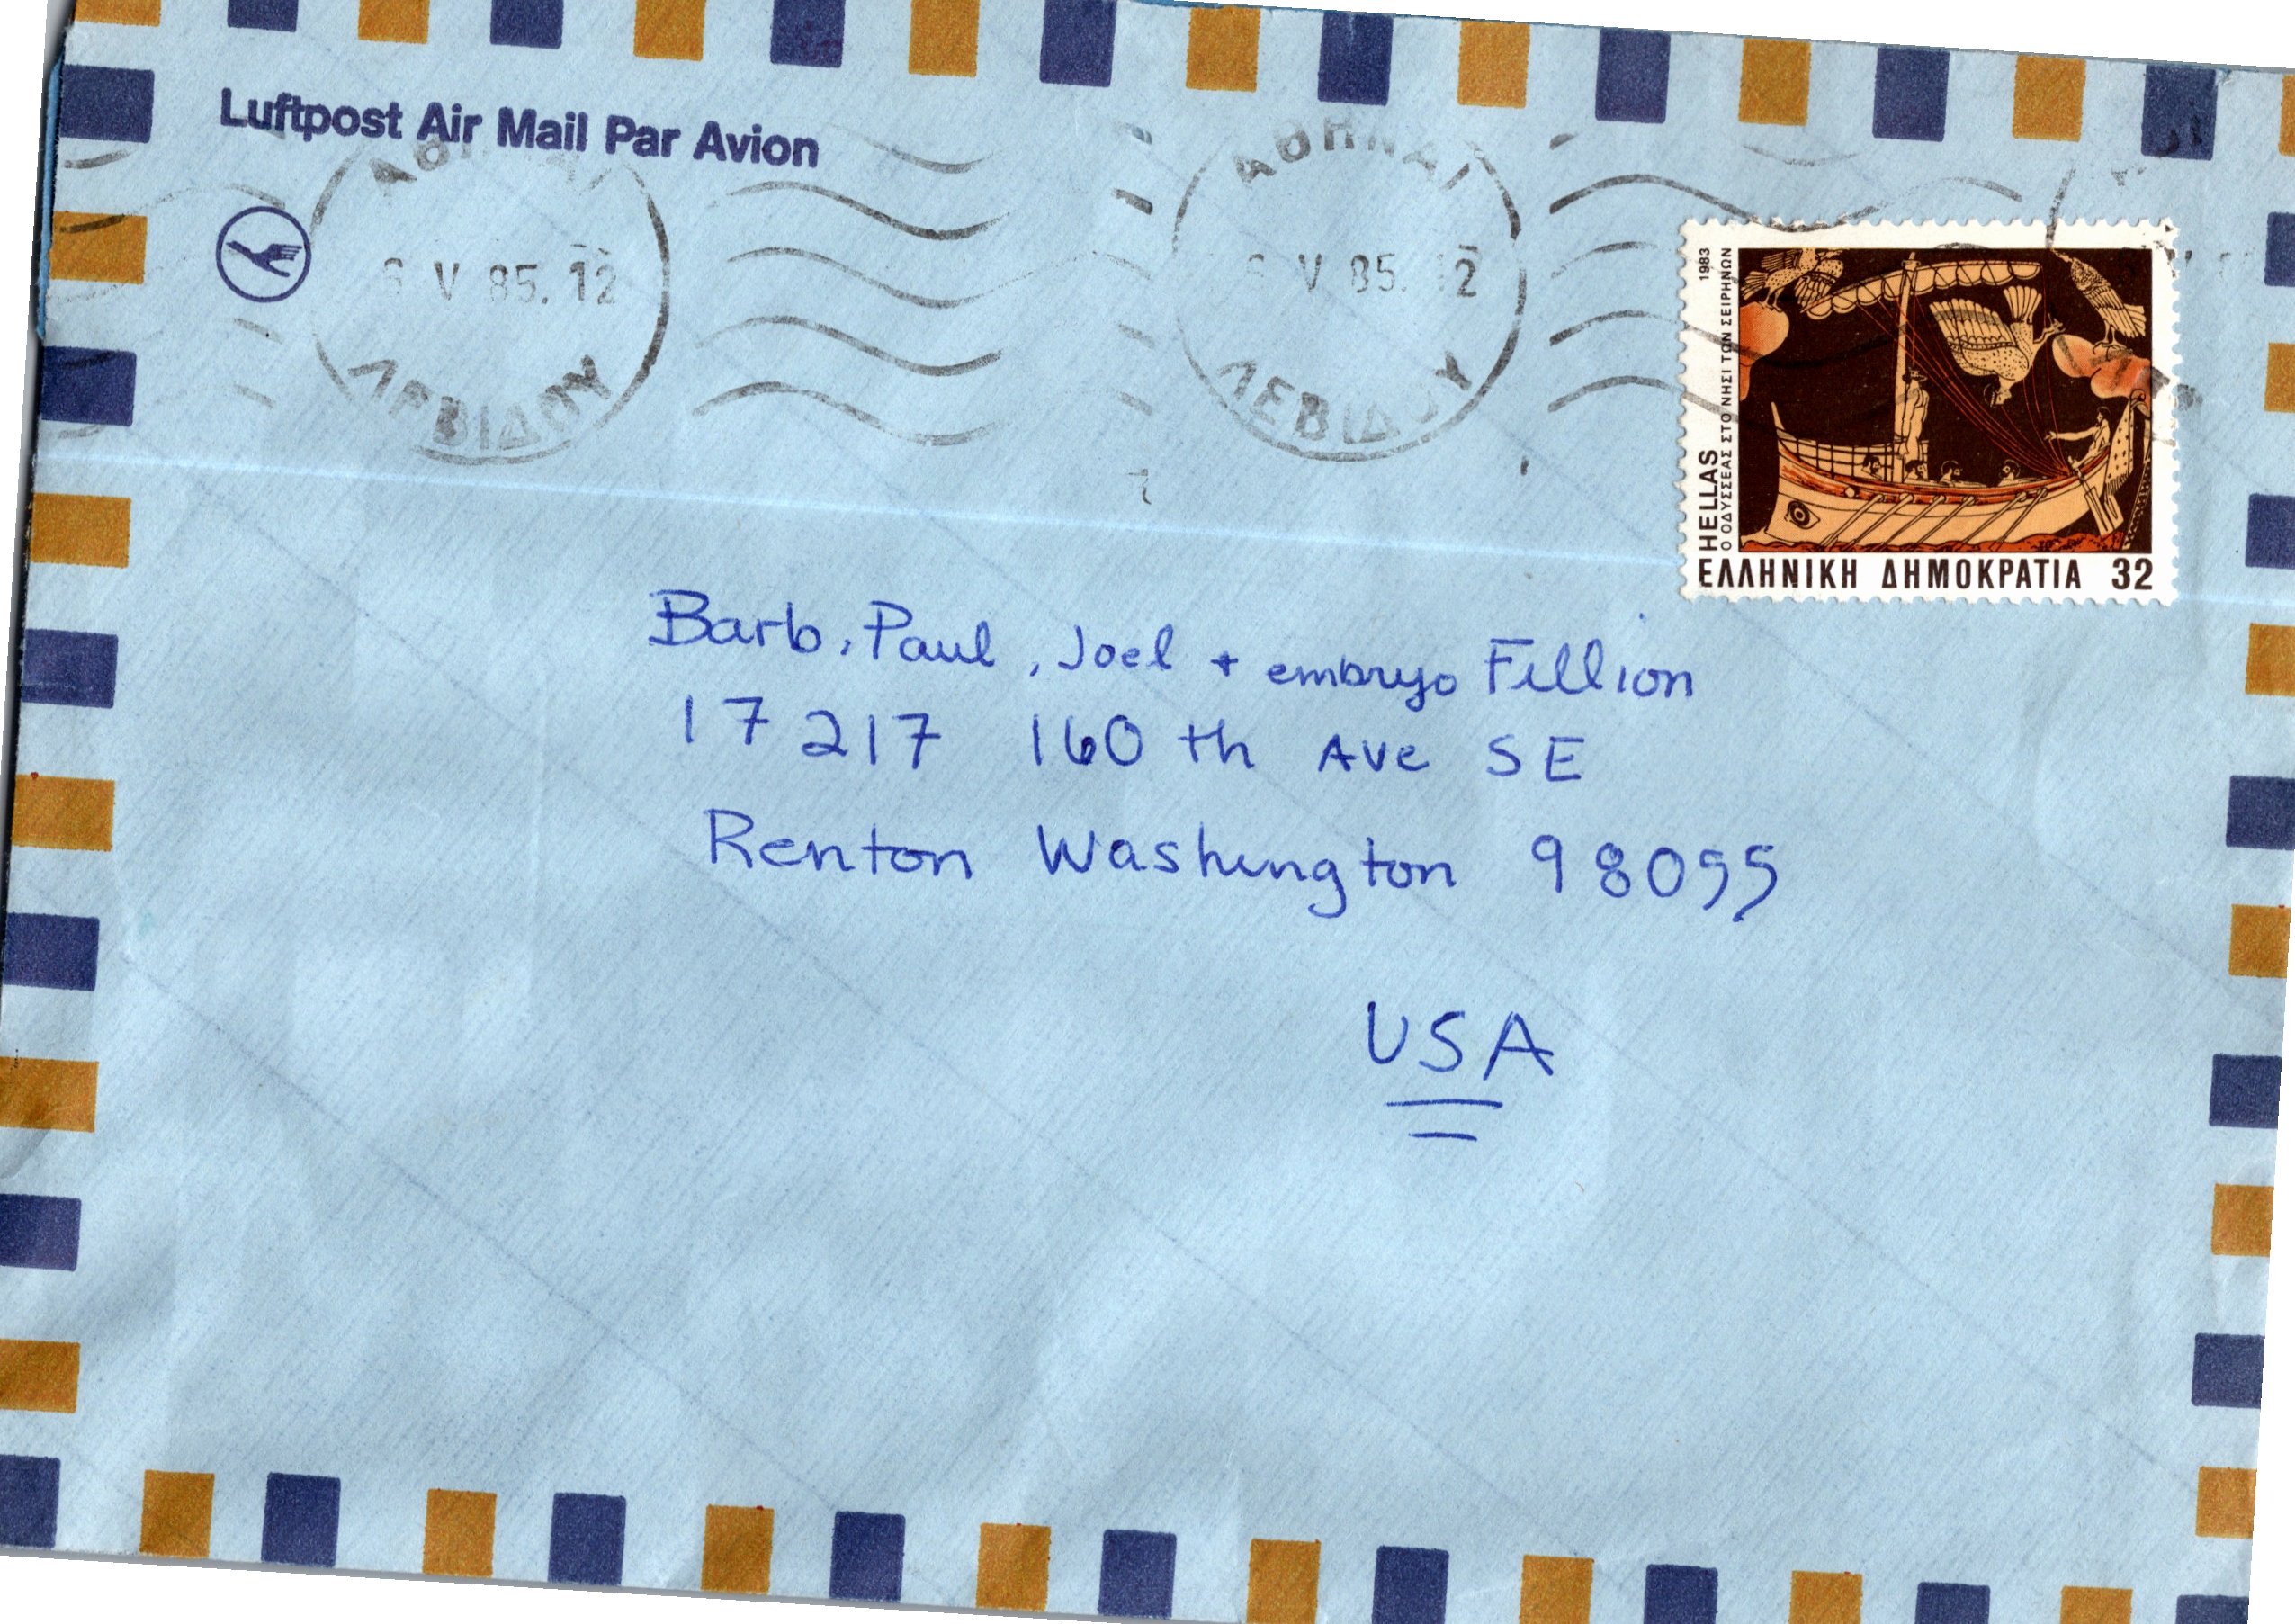 Luftpost Air Mail Par Avion
ΑΘΗΝΑΙ
6 V 85.12
ΛΕΒΙΔΟΥ
ΑΘΗΝΑΙ
6 V 85. 12
ΛΕΒΙΔΟΥ
1983
HELLAS
Ο ΟΔΥΣΣΕΑΣ ΣΤΟ ΝΗΣΙ ΤΩΝ ΣΕΙΡΗΝΩΝ
ΕΛΛΗΝΙΚΗ ΔΗΜΟΚΡΑΤΙΑ 32
Barb, Paul, Joel + embryo Fillion
17217 160 th Ave SE
Renton Washington 98055
USA